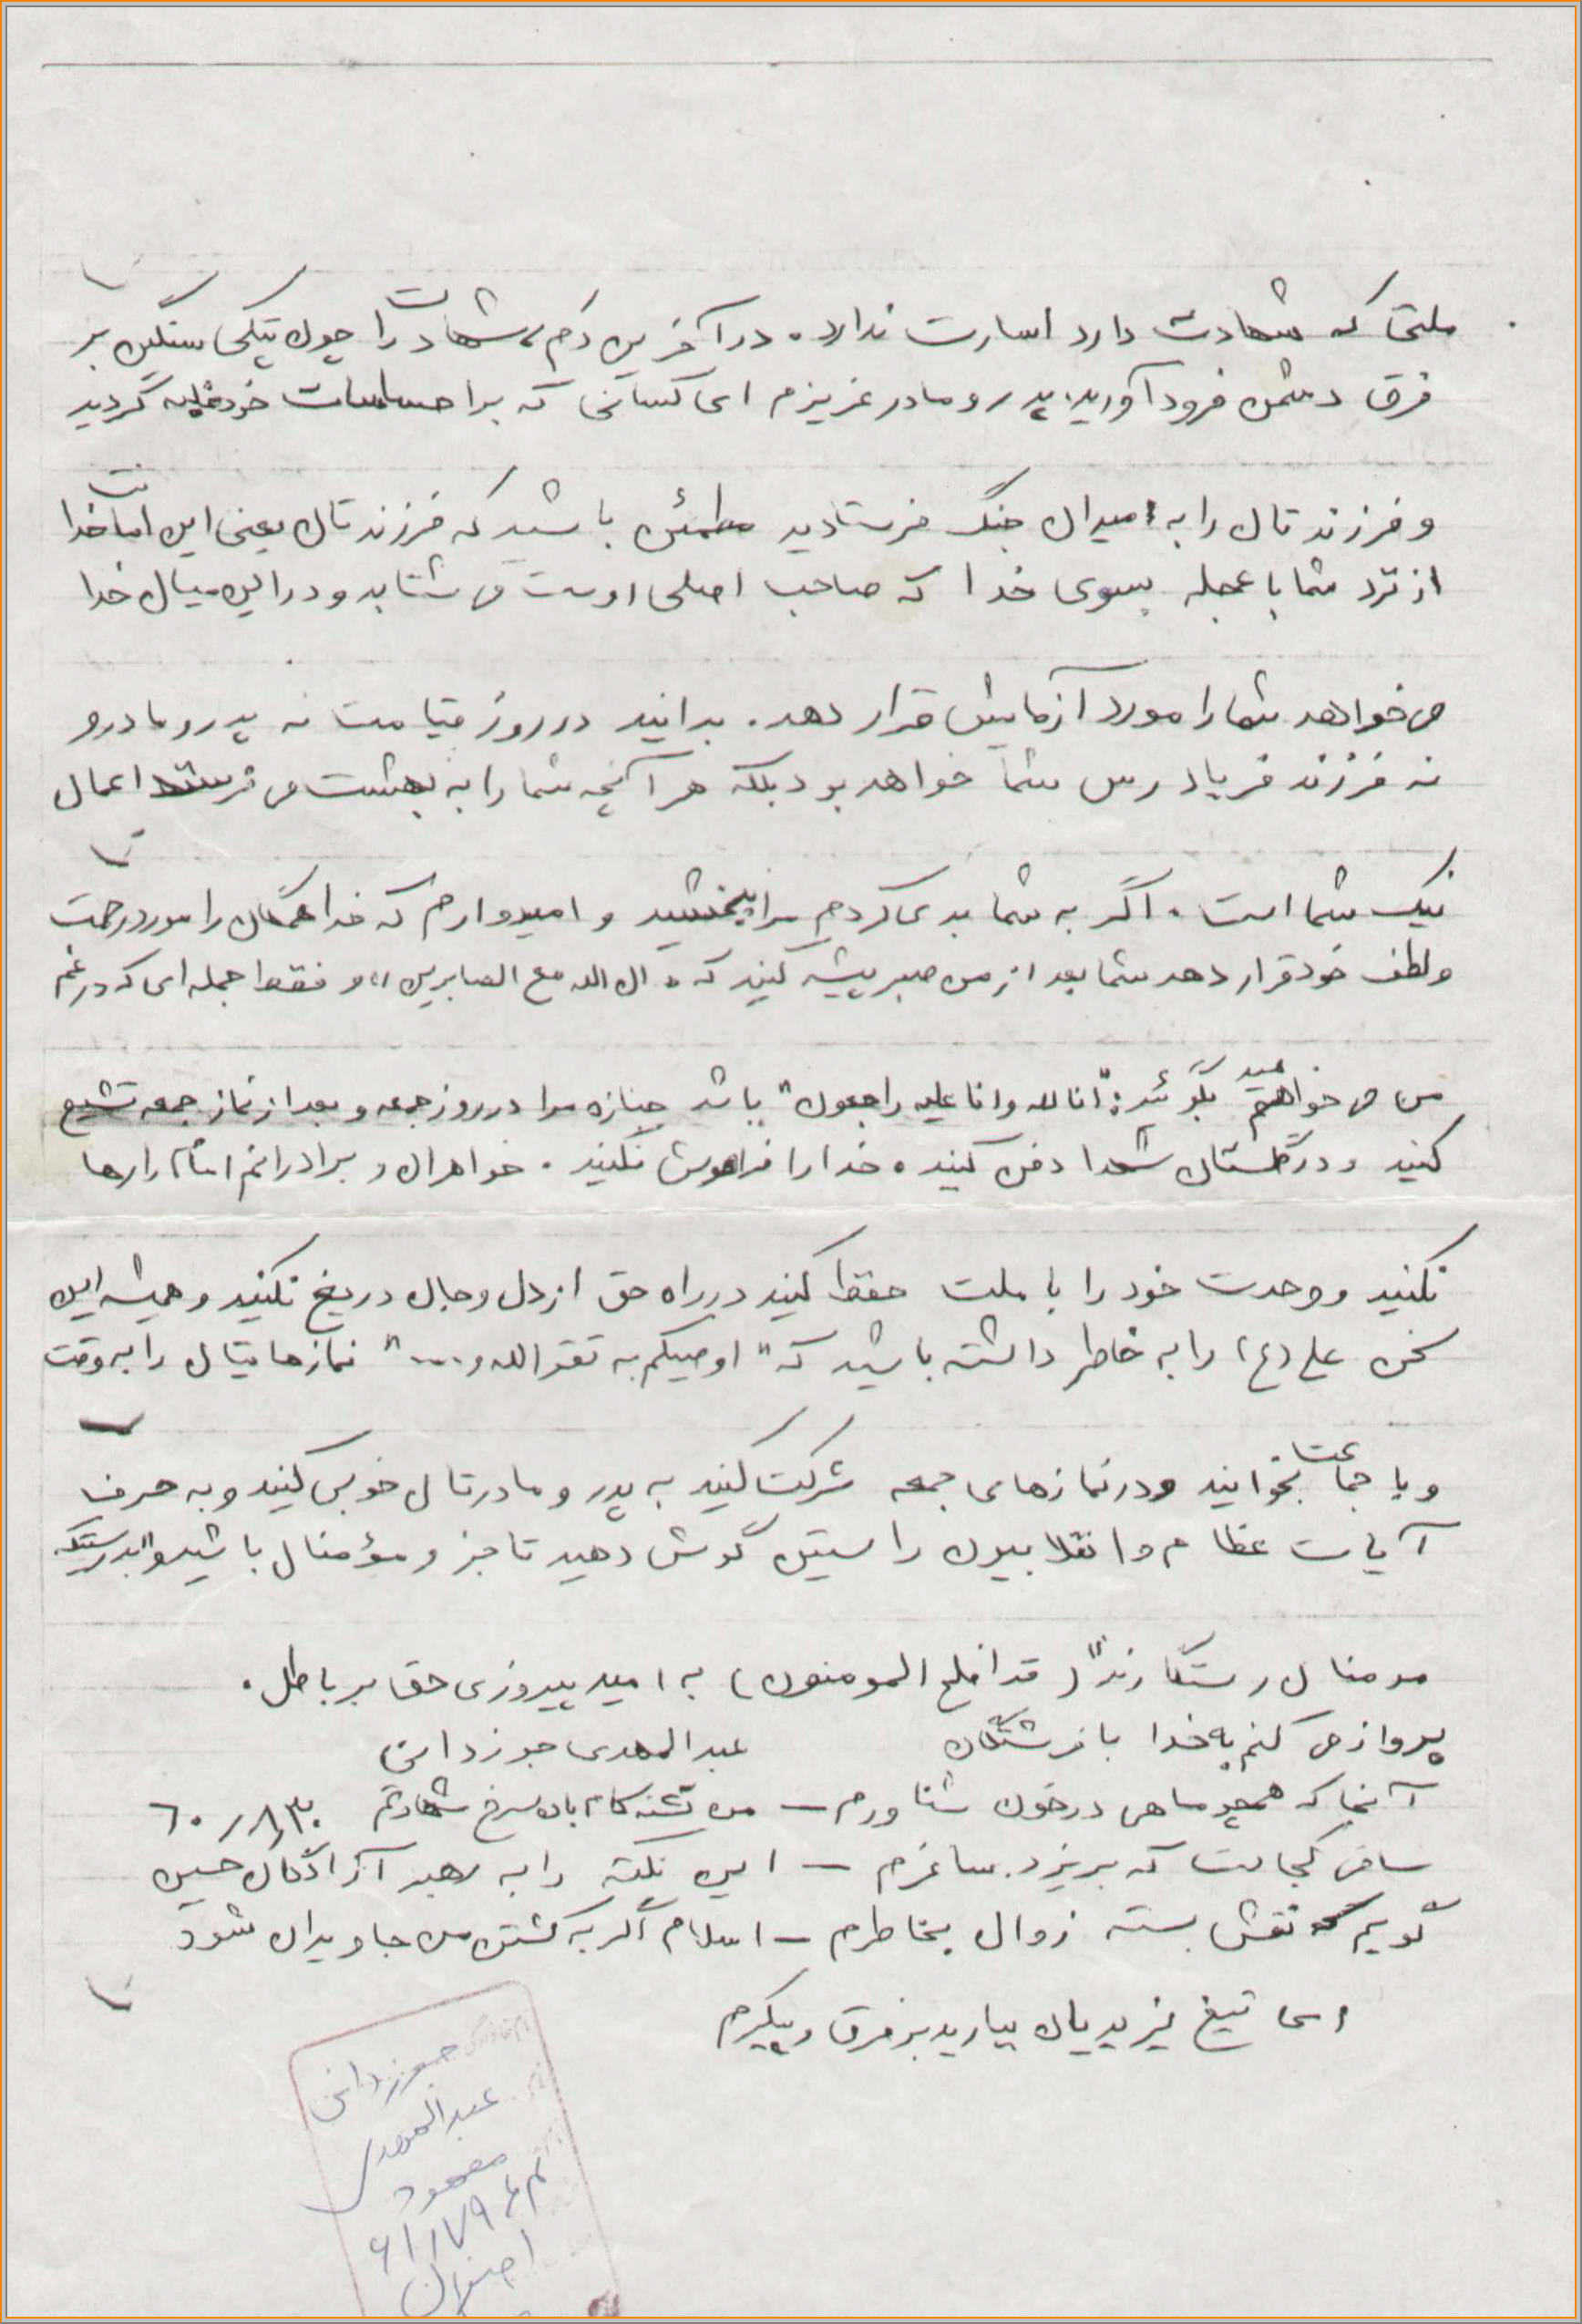 ملتی که شهادت دارد اسارت ندارد. در آخرین دم، شهادت را چون پتکی سنگین بر
فرق دشمن فرود آورید. پدر و مادر عزیزم ای کسانی که بر احساسات خود غلبه کردید
و فرزندتان را به میدان جنگ فرستادید مطمئن باشید که فرزندتان یعنی این امانت خدا
از نزد شما با عجله بسوی خدا که صاحب اصلی اوست می شتابد و در این میان خدا
می خواهد شما را مورد آزمایش قرار دهد. بدانید در روز قیامت نه پدر و مادر و
نه فرزند فریاد رس شما خواهد بود بلکه هر آنچه شما را به بهشت می فرستد اعمال
نیک شما است. اگر به شما بدی کردم مرا ببخشید و امیدوارم که خدا همگان را مورد رحمت
و لطف خود قرار دهد شما بعد از من صبر پیشه کنید که «ان الله مع الصابرین» و فقط جمله ای که در غم
من می خواهم بگوئید: "انا لله وانا علیه راجعون" باشد جنازه مرا در روز جمعه و بعد از نماز جمعه تشیع
کنید و در گلستان شهدا دفن کنید. خدا را فراموش نکنید. خواهران و برادرانم امام را رها
نکنید و وحدت خود را با ملت حفظ کنید در راه حق از دل و جان دریغ نکنید و همیشه این
سخن علی (ع) را به خاطر داشته باشید که "اوصیکم به تقو الله و...." نمازهایتان را به وقت
و با جماعت بخوانید و در نمازهای جمعه شرکت کنید به پدر و مادرتان خوبی کنید و به حرف
آیات عظام و انقلابیون راستین گوش دهید تا جزو مؤمنان باشید و "بدرستیکه
مومنان رستگارند" (قد افلح المومنون) به امید پیروزی حق بر باطل.
پرواز می کنم به خدا با فرشتگان
عبدالمهدی جوزدانی
آنجا که همچو ماهی در خون شناورم – من تشنه کام باده سرخ شهادتم ۶۰/۸/۳۰
ساقی کجاست که بریزد بساغرم – این نکته را به رهبر آزادگان حسین
گویم که نقش بسته زوال بخاطرم – اسلام اگر به کشتن من جاویدان شود
ای تیغ یزیدیان ببارید بر فرق و پیکرم
جوزدانی
عبدالمهدی
اصفهان